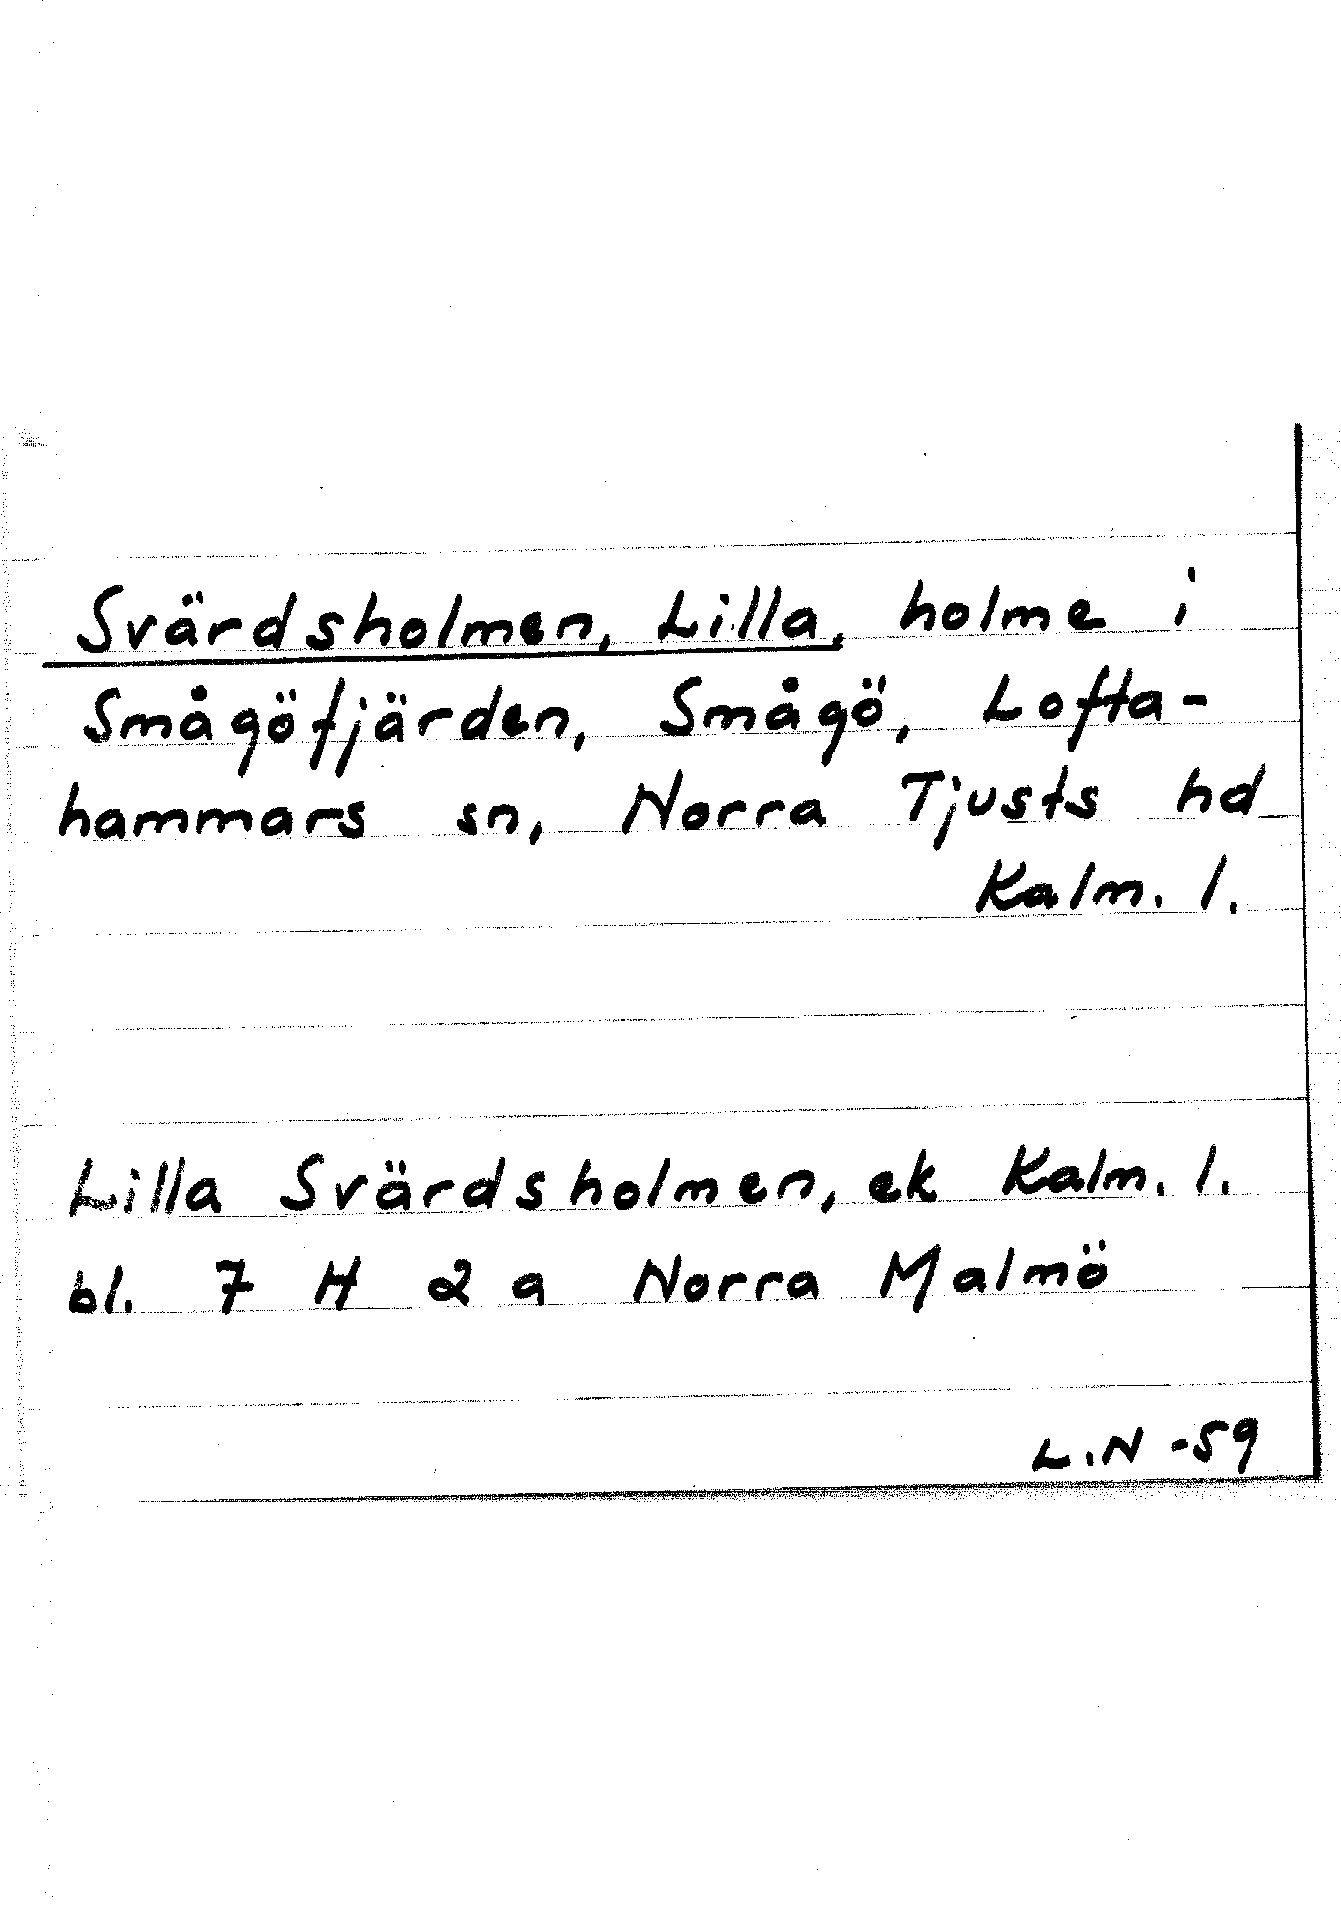 Svärdsholmen, Lilla, holme i
Smågöfjärden, Smågö, Lofta-
hammars sn, Norra Tjusts hd
Kalm. l.
Lilla Svärdsholmen, ek Kalm. l.
bl. 7 H 2 a Norra Malmö
L.N -59